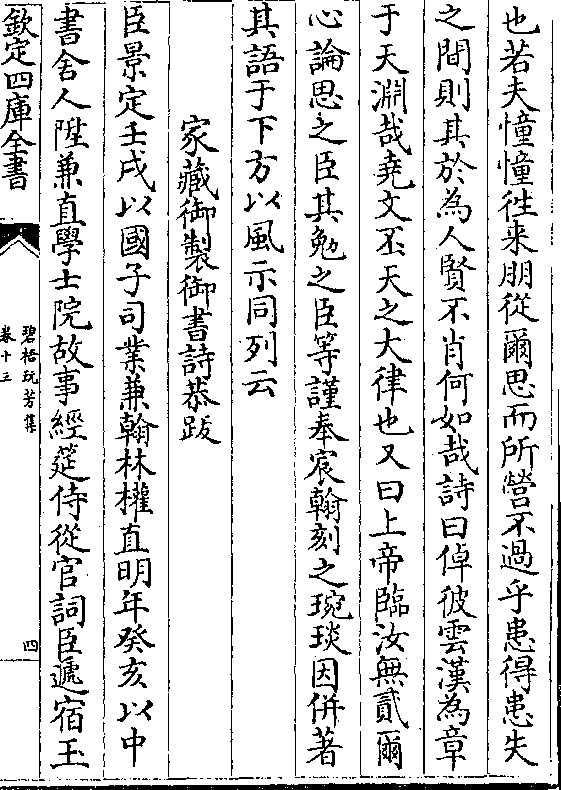 也若夫憧憧徃来朋從爾思而所營不過乎患得患失
之間則其於為人賢不肖何如哉詩曰倬彼雲漢為章
于天淵哉堯文丕天之大律也又曰上帝臨汝無貳爾
心論思之臣其勉之臣等謹奉宸翰刻之琬琰因併著
其語于下方以風示同列云
家藏御製御書詩恭跋
臣景定壬戌以國子司業兼翰林權直明年癸亥以中
書舍人陞兼直學士院故事經筵侍從官詞臣遞宿玉
欽定四庫全書
碧梧玩芳集
卷十三
四